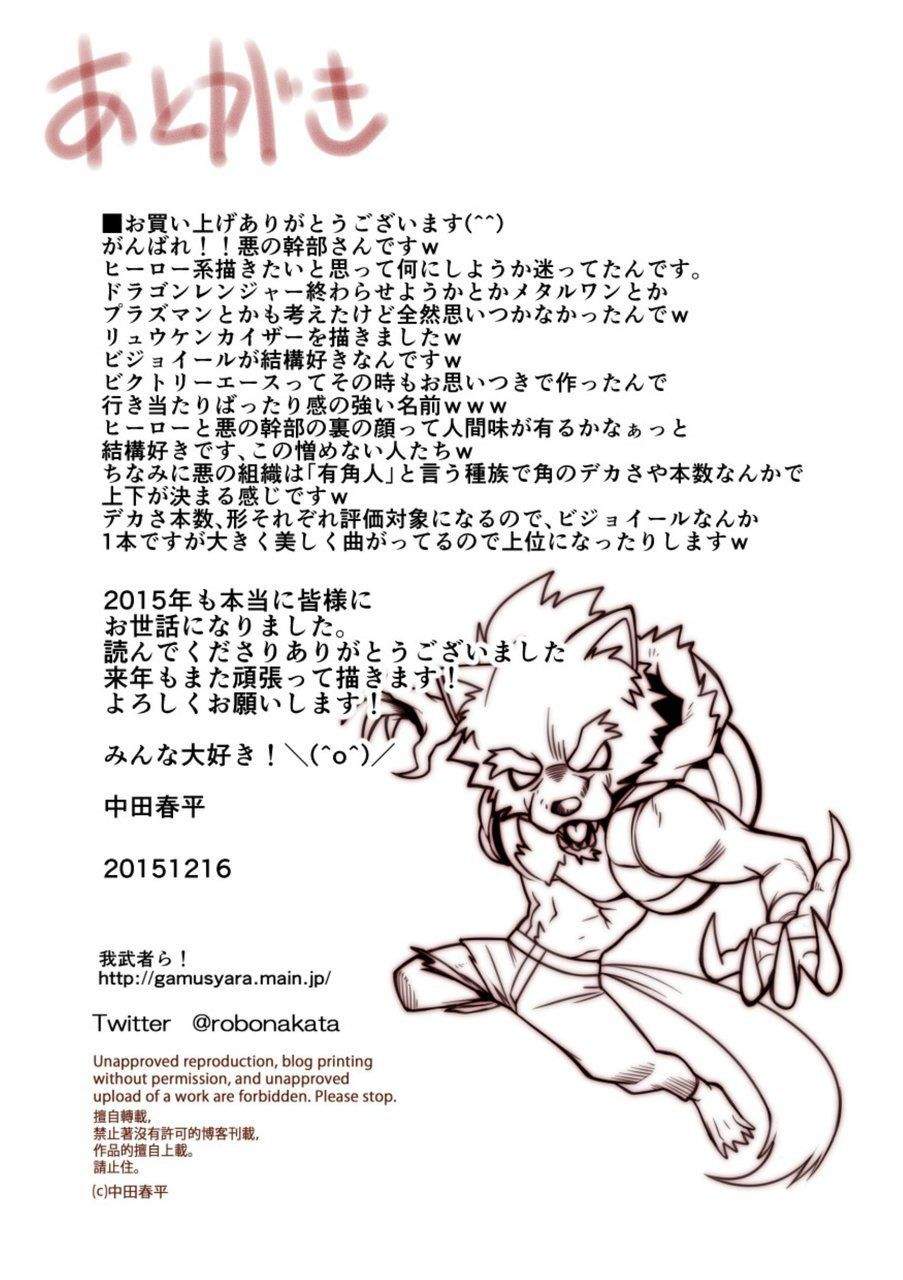 あとがき
■お買い上げありがとうございます(^^)
がんばれ！！悪の幹部さんですｗ
ヒーロー系描きたいと思って何にしようか迷ってたんです。
ドラゴンレンジャー終わらせようかとかメタルワンとか
プラズマンとかも考えたけど全然思いつかなかったんでｗ
リュウケンカイザーを描きましたｗ
ビジョイールが結構好きなんですｗ
ビクトリーエースってその時もお思いつきで作ったんで
行き当たりばったり感の強い名前ｗｗｗ
ヒーローと悪の幹部の裏の顔って人間味が有るかなぁっと
結構好きです、この憎めない人たちｗ
ちなみに悪の組織は「有角人」と言う種族で角のデカさや本数なんかで
上下が決まる感じですｗ
デカさ本数、形それぞれ評価対象になるので、ビジョイールなんか
1本ですが大きく美しく曲がってるので上位になったりしますｗ
2015年も本当に皆様に
お世話になりました。
読んでくださりありがとうございました
来年もまた頑張って描きます！
よろしくお願いします！
みんな大好き！＼(^o^)／
中田春平
20151216
我武者ら！
http://gamusyara.main.jp/
Twitter　@robonakata
Unapproved reproduction, blog printing
without permission, and unapproved
upload of a work are forbidden. Please stop.
擅自轉載,
禁止著沒有許可的博客刊載,
作品的擅自上載。
請止住。
(c)中田春平